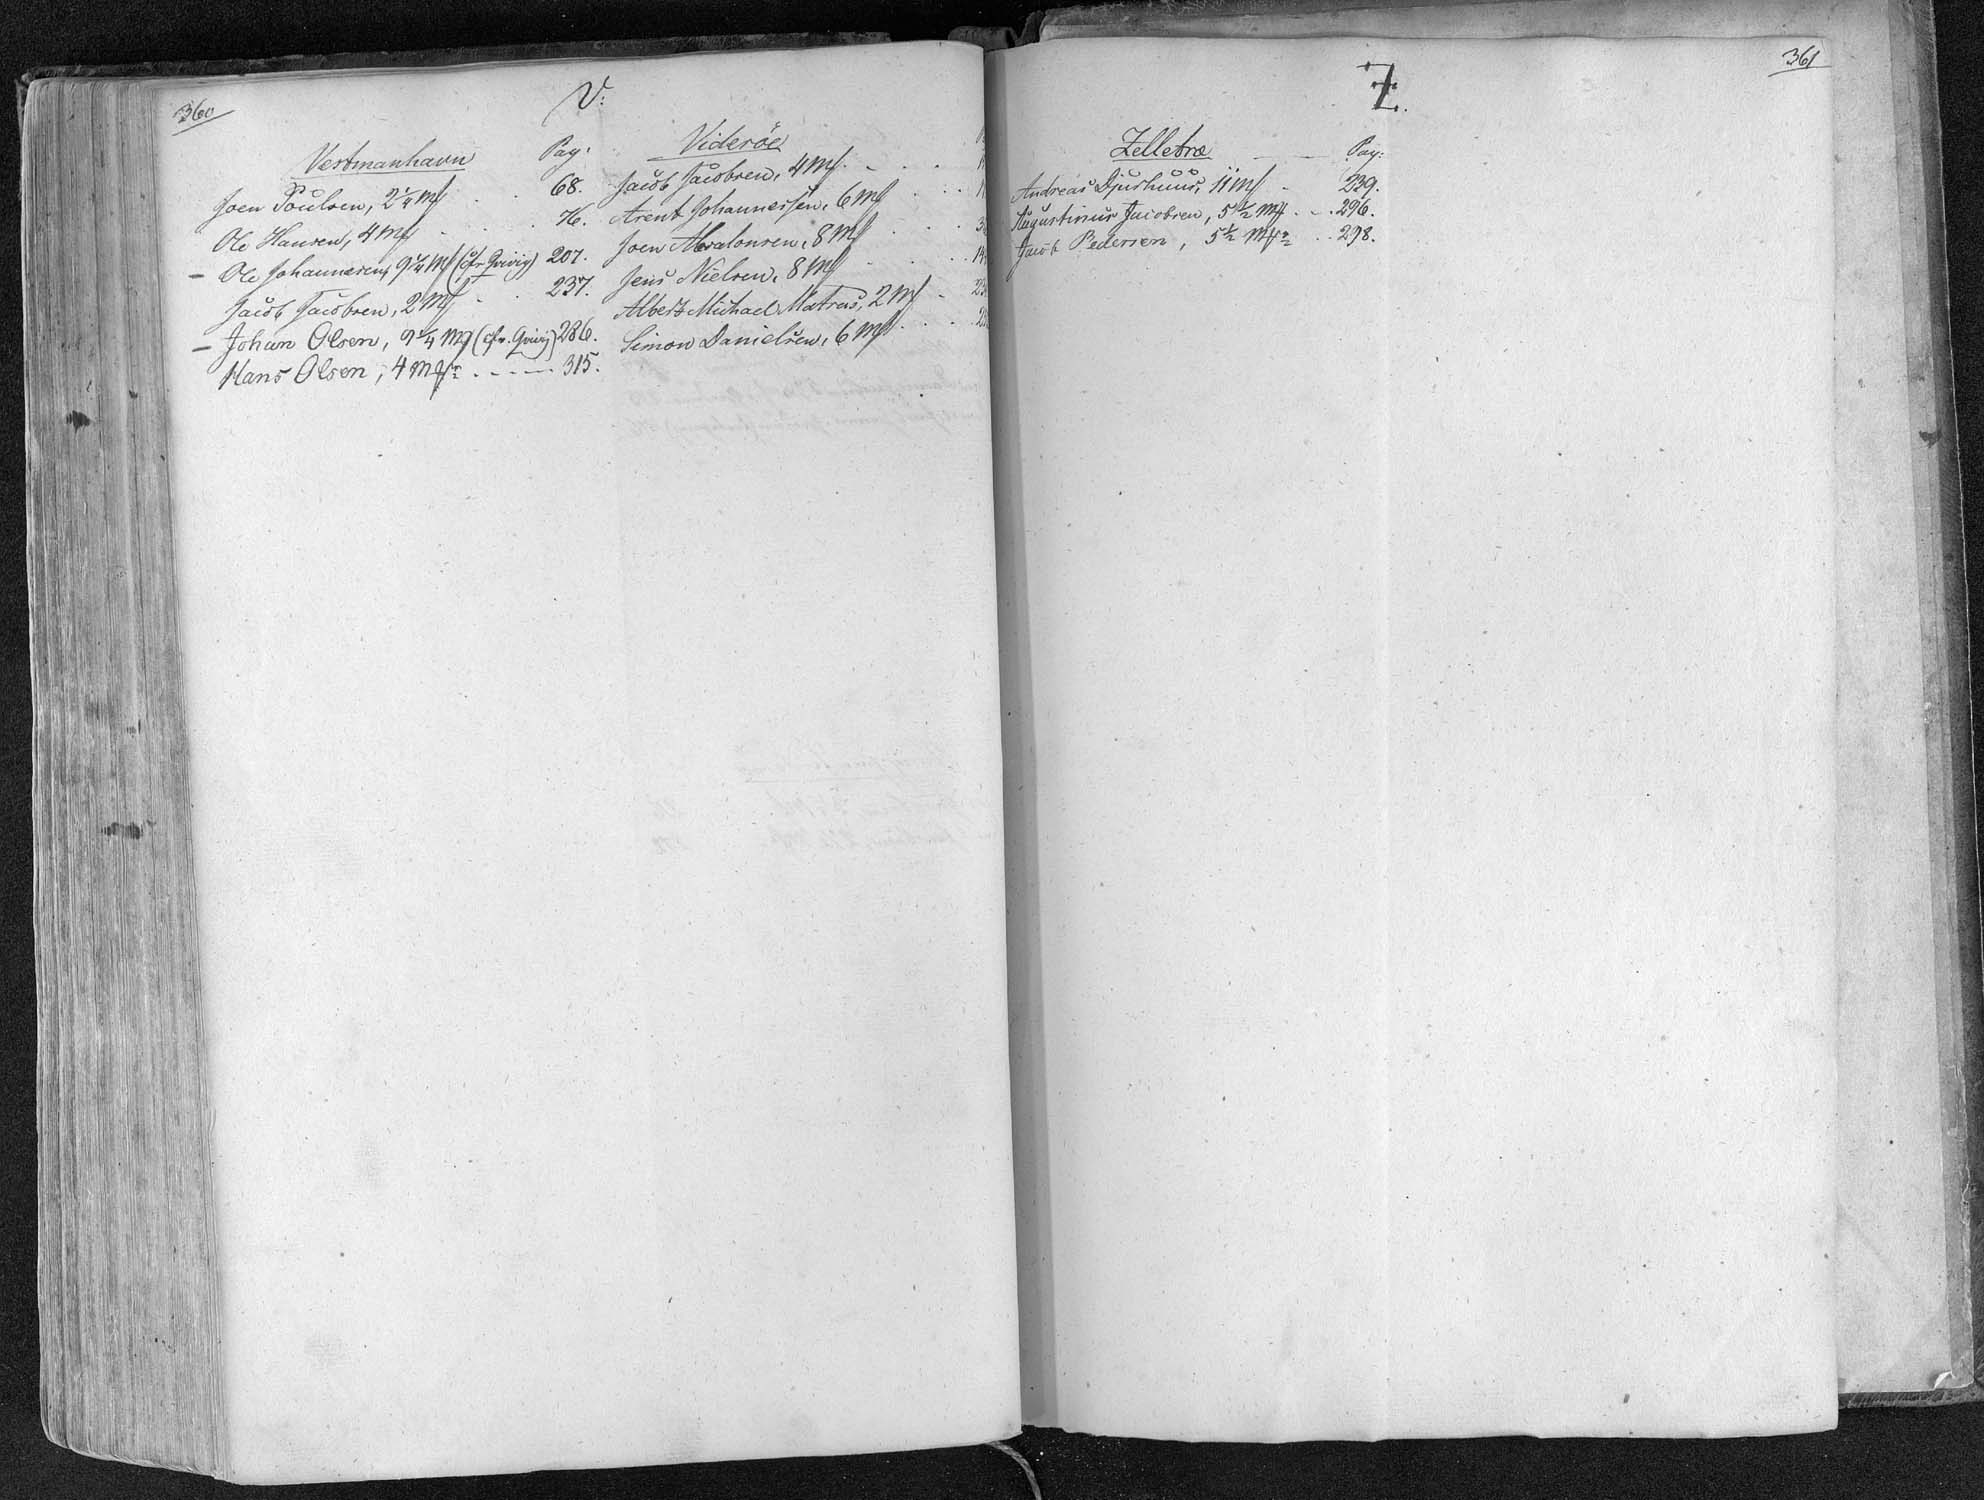 360
V:
Vestmanhavn Pag:
Joen Poulsen, 2 1/4 Mk . . 68.
Ole Hansen, 4 Mk . . . 76.
– Ole Johannesen, 9 1/4 Mk (cfr Qvivig) 207.
Jacob Jacobsen, 2 Mk . . 237.
– Johan Olsen, 9 1/4 Mk (cfr. Qvivig) 286.
Hans Olsen, 4 Mk . . . . . 315.
Viderøe
Jacob Jacobsen, 4 Mk . . . .
Arent Johannessen, 6 Mk . . .
Joen Absalonsen, 8 Mk . . . .
Jens Nielsen, 8 Mk . . . .
Albert Michael Matras, 2 Mk .
Simon Danielsen, 6 Mk . . .
361
Z.
Zelletræ Pag:
Andreas Djurhuus, 11 Mk . 239.
Augustinus Jacobsen, 5 1/2 Mk . . . 296.
Jacob Pedersen, 5 1/2 Mk . . 298.